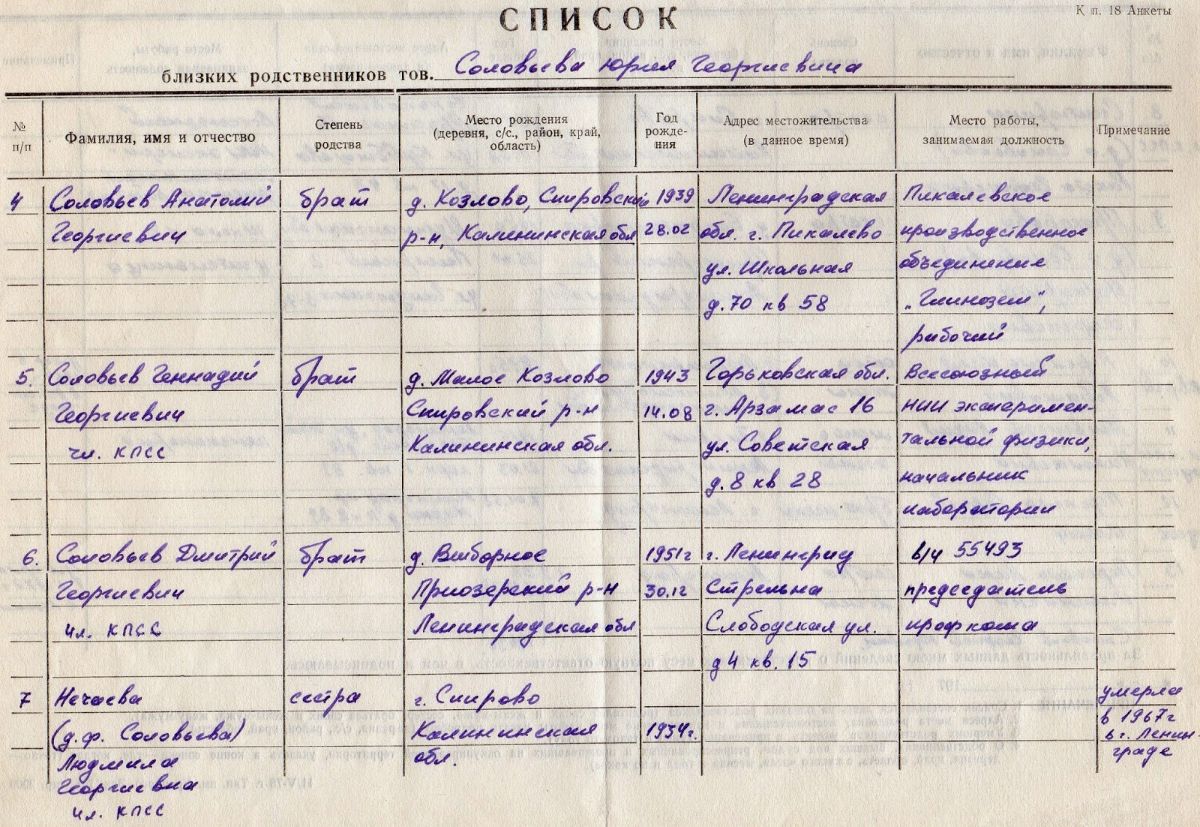 СПИСОК
К п. 18 Анкеты
близких родственников тов. Соловьева Юрия Георгиевича
№ п/п
Фамилия, имя и отчество
Степень родства
Место рождения (деревня, с/с., район, край, область)
Год рожде- ния
Адрес местожительства (в данное время)
Место работы, занимаемая должность
Примечание
4 Соловьев Анатолий брат д. Козлово, Спировский 1939 Ленинградская Пикалевское
Георгиевич р-н, Калининская обл 28.02 обл. г. Пикалево производственное
ул. Школьная объединение
д. 70 кв 58 "Глинозем",
рабочий
5. Соловьев Геннадий брат д. Малое Козлово 1943 Горьковская обл. Всесоюзный
Георгиевич Спировский р-н 14.08 г. Арзамас 16 НИИ эксперимен-
чл. КПСС Калининская обл. ул. Советская тальной физики,
д. 8 кв 28 начальник
лаборатории
6. Соловьев Дмитрий брат д. Выборное 1951г г. Ленинград в/ч 55493
Георгиевич Приозерский р-н 30.12 Стрельна председатель
чл. КПСС Ленинградская обл Слободская ул. профкома
д 4 кв. 15
7 Нечаева сестра г. Спирово умерла
(д.ф. Соловьева) Калининская 1934г. в 1967г
Людмила обл. в г. Ленин-
Георгиевна граде
чл. КПСС